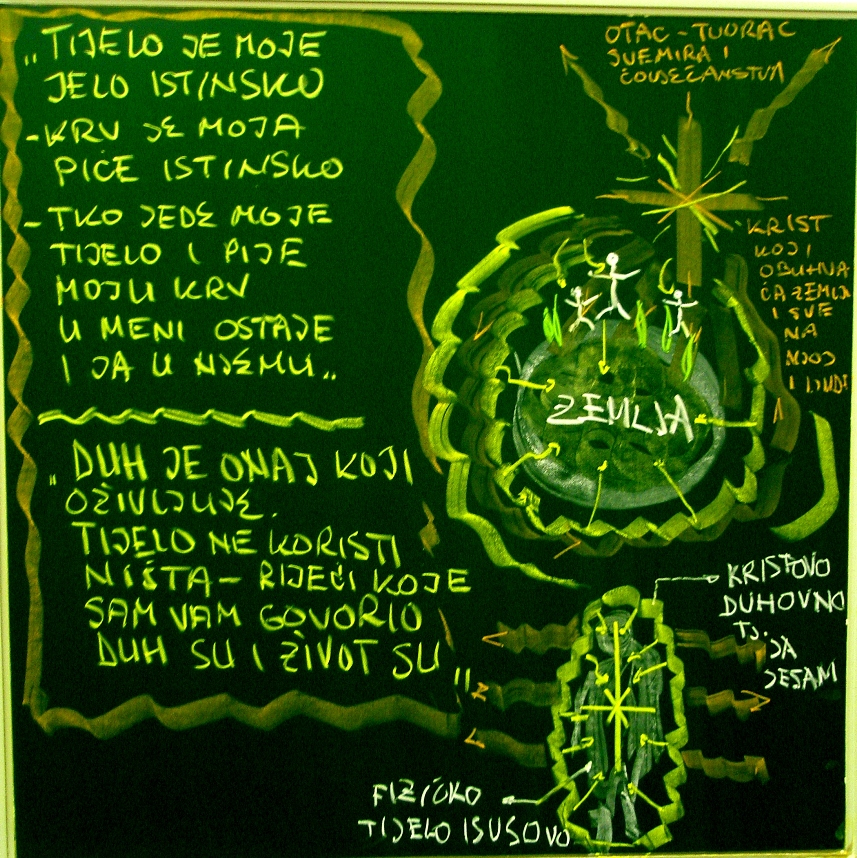 „TIJELO JE MOJE
JELO ISTINSKO
-KRV JE MOJA
PIĆE ISTINSKO
-TKO JEDE MOJE
TIJELO I PIJE
MOJU KRV
U MENI OSTAJE
I JA U NJEMU„
„DUH JE ONAJ KOJI
OŽIVLJUJE.
TIJELO NE KORISTI
NIŠTA - RIJEČI KOJE
SAM VAM GOVORIO
DUH SU I ŽIVOT SU„
OTAC - TVORAC
SVEMIRA I
ČOVJEČANSTVA
KRIST
KOJI
OBUHVA
ĆA ZEMLJU
I SVE
NA
NJOJ
I LJUDE
ZEMLJA
KRISTOVO
DUHOVNO
TJ.
JA
JESAM
FIZIČKO
TIJELO ISUSOVO